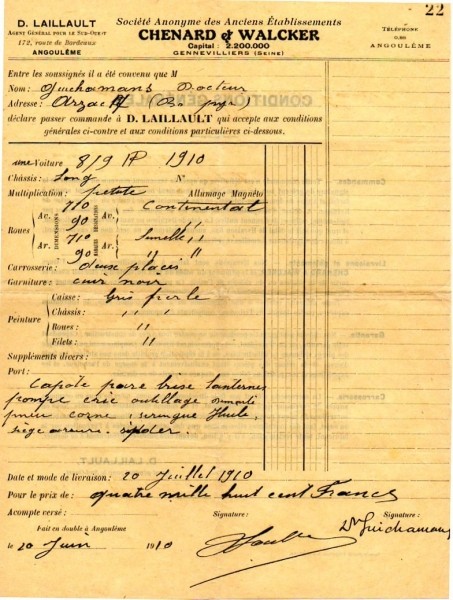 22
D. LAILLAULT
AGENT GÉNÉRAL POUR LE SUD-OUEST
172, route de Bordeaux
ANGOULÊME
Société Anonyme des Anciens Établissements
CHENARD & WALCKER
Capital : 2.200.000
GENNEVILLIERS (SEINE)
TÉLÉPHONE
ANGOULÊME
Entre les soussignés il a été convenu que M
Nom : Guichamans Docteur
Adresse : Arzacq (Bas Pyr)
déclare passer commande à D. LAILLAULT qui accepte aux conditions
générales ci-contre et aux conditions particulières ci-dessous.
une Voiture 8/9 HP 1910
Châssis : Long N°
Multiplication : petite Allumage Magnéto
Roues Av. 710 90 DIMENSIONS Av. Continental
Ar. 710 90 Ar. Semelle "
Carrosserie : deux places
Garniture : cuir noir
Peinture Caisse : Gris perle
Châssis : " "
Roues : "
Filets : "
Suppléments divers :
Port :
Capote pare brise lanternes
pompe cric outillage
pneu corne, seringue Huile,
siège
Date et mode de livraison : 20 Juillet 1910
Pour le prix de : quatre mille huit cent Francs
Acompte versé : Signature : Signature :
Fait en double à Angoulême
le 20 Juin 1910
Dr Guichamans